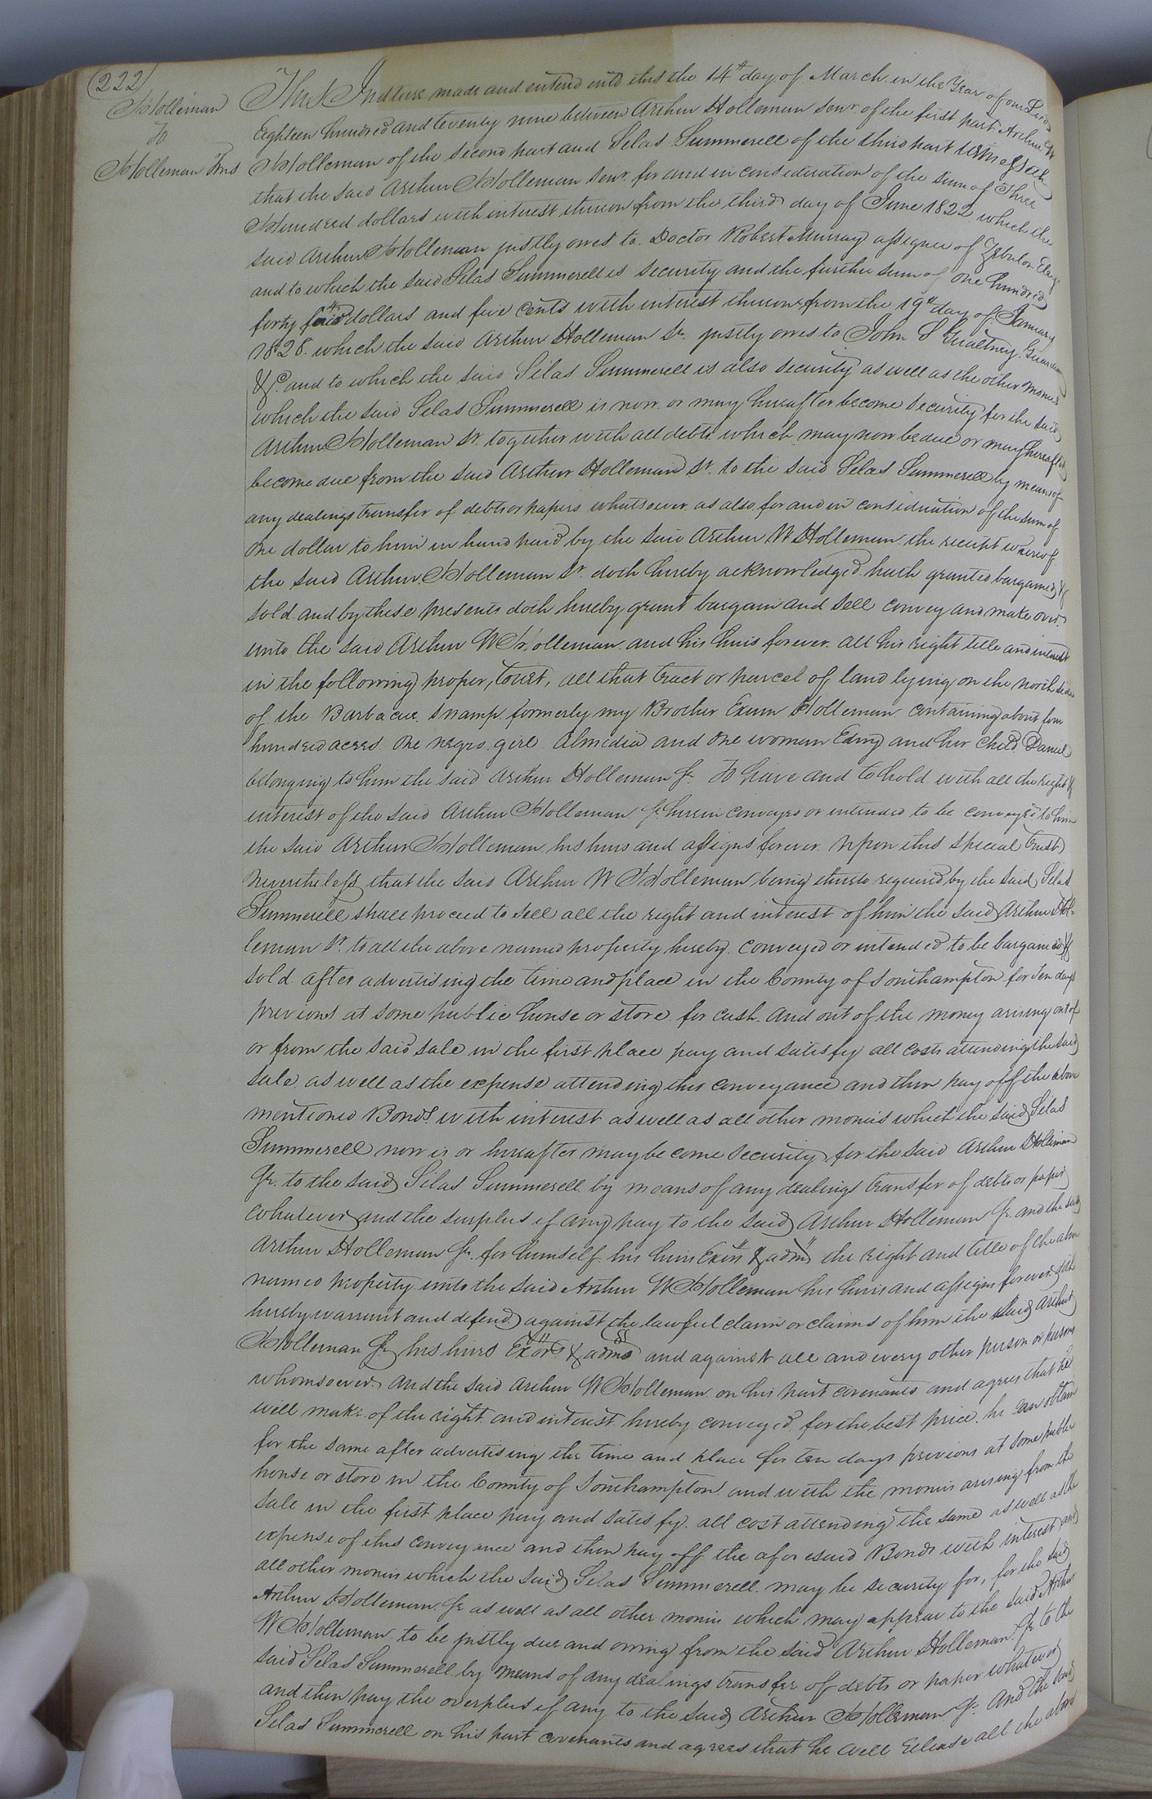 (222)
Holleman
To
Holleman Trus
This Indture made and enterd into this the 14th day of March in the Year of our Lord
Eighteen hundred and twenty nine between Arthur Holleman Senr. of the first part Arthur W
Holleman of the second part and Silas Summerell of the third part Witnesseth
that the said Arthur Holleman Senr. for and in consideration of the sum of Three
Hundred dollars with interest thereon from the third day of June 1822 which the
said Arthur Holleman justly owes to Doctor Robert Murray assignee of Zebulon
and to which the said Silas Summerell is security and the further sum of One hundred
forty dollars and five cents with interest thereon from the 19th day of January
1828. which the said Arthur Holleman Sr. justly owes to John S Gwaltney Guardian
&c. and to which the said Silas Summerell is also security as well as the other monies
which the said Silas Summerell is now or may hereafter become security for the said
Arthur Holleman Sr. together with all debts which may now be due or may hereafter
become due from the said Arthur Holleman Sr. to the said Silas Summerell by means of
any dealings transfer of debts or papers whatsoever as also for and in consideration of the sum of
One dollar to him in hand paid by the said Arthur W Holleman the receipt whereof
the said Arthur Holleman Sr. doth hereby acknowledged hath granted bargained &
sold and by these presents doth hereby grant bargain and sell convey and make over
unto the said Arthur W Holleman and his heirs forever all his right title and interest
in the following property, Towit, all that tract or parcel of land lying on the north side
of the Barbacue Swamp formerly my Brother Exum Holleman containing about four
hundred acres One negro girl Almedia and One woman Edny and her child Daniel
belonging to him the said Arthur Holleman Jr. To have and to hold with all the right &
interest of the said Arthur Holleman Jr herein conveyed or intended to be conveyed to him
the said Arthur Holleman his heirs and assigns forever Upon this special trust
Nevertheless that the said Arthur W Holleman being thereto required by the said Silas
Summerell shall proceed to sell all the right and interest of him the said Arthur Hol-
leman Sr. to all the above named property hereby conveyed or intended to be bargained &
sold after advertising the time and place in the County of Southampton for ten days
previous at some public house or store for cash. And out of the money arising out of
or from the said sale in the first place pay and satisfy all costs attending the said
sale as well as the expense attending this conveyance and then pay off the above
mentioned Bonds with interest as well as all other monies which the said Silas
Summerell now is or hereafter may become security for the said Arthur Holleman
Jr. to the said Silas Summerell by means of any dealings transfer of debts or papers
whatever and the surplus if any pay to the said Arthur Holleman Jr. and the said
Arthur Holleman Jr. for himself his heirs Exors & adms the right and title of the above
named property unto the said Arthur W Holleman his heirs and assigns forever doth
hereby warrant and defend against the lawful claim or claims of him the said Arthur
Holleman Jr his heirs Exors & adms and against all and every other person or persons
whomsoever. And the said Arthur W Holleman on his part covenants and agrees that he
will make of the right and interest hereby conveyed for the best price he can obtain
for the same after advertising the time and place for ten days previous at some public
house or store in the County of Southampton and with the monies arising from the
sale in the first place pay and satisfy all cost attending the same as well as the
expense of this conveyance and then pay off the aforesaid Bonds with interest and
all other monies which the said Silas Summerell may be security for, for the said
Arthur Holleman Jr as well as all other monies which may appear to the said Arthur
W Holleman to be justly due and owing from the said Arthur Holleman Jr to the
said Silas Summerell by means of any dealings transfer of debts or paper whatever
and then pay the overplus if any to the said Arthur Holleman Jr. And the said
Silas Summerell on his part covenants and agrees that he will release all the above